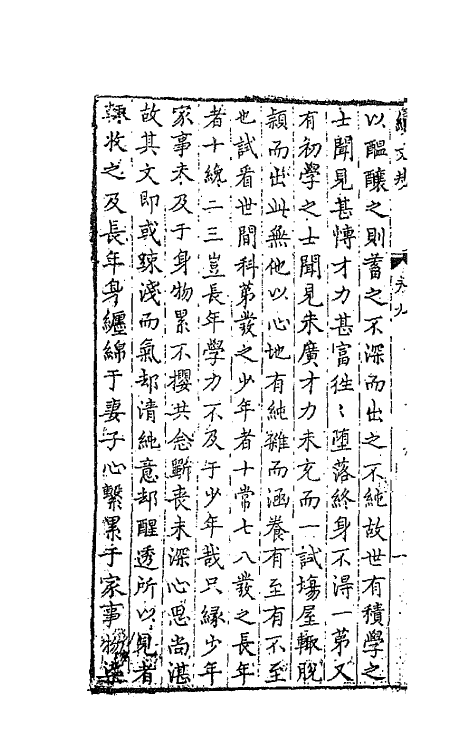 續文規 卷九 一
以醞釀之則蓄之不深而出之不純故世有積學之
士聞見甚博才力甚富徃〻墮落終身不得一第又
有初學之士聞見未廣才力未充而一試塲屋輙脫
穎而出此無他以心地有純雜而涵養有至有不至
也試看世間科第發之少年者十常七八發之長年
者十纔二三豈長年學力不及于少年哉只縁少年
家事未及于身物累不攖其念斵喪未深心思尚湛
故其文即或踈淺而氣却清純意却醒透所以見者
輙收之及長年身纏綿于妻子心繫累于家事物